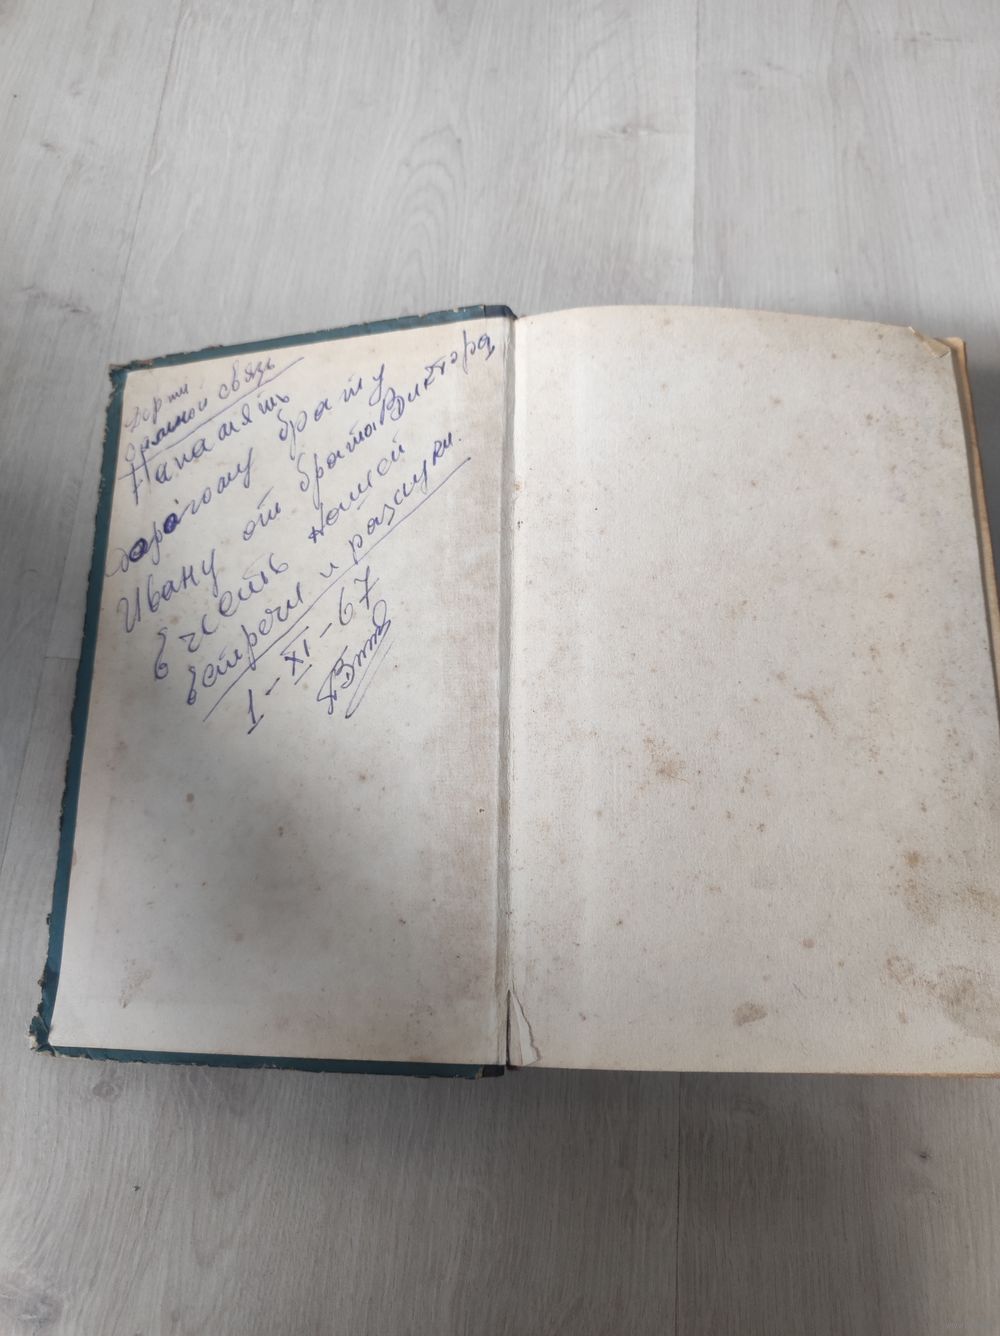 Держи
связь
Напамять
дорогому брату
Ивану от брата Виктора
в честь нашей
встречи и разлуки.
1-XI-67